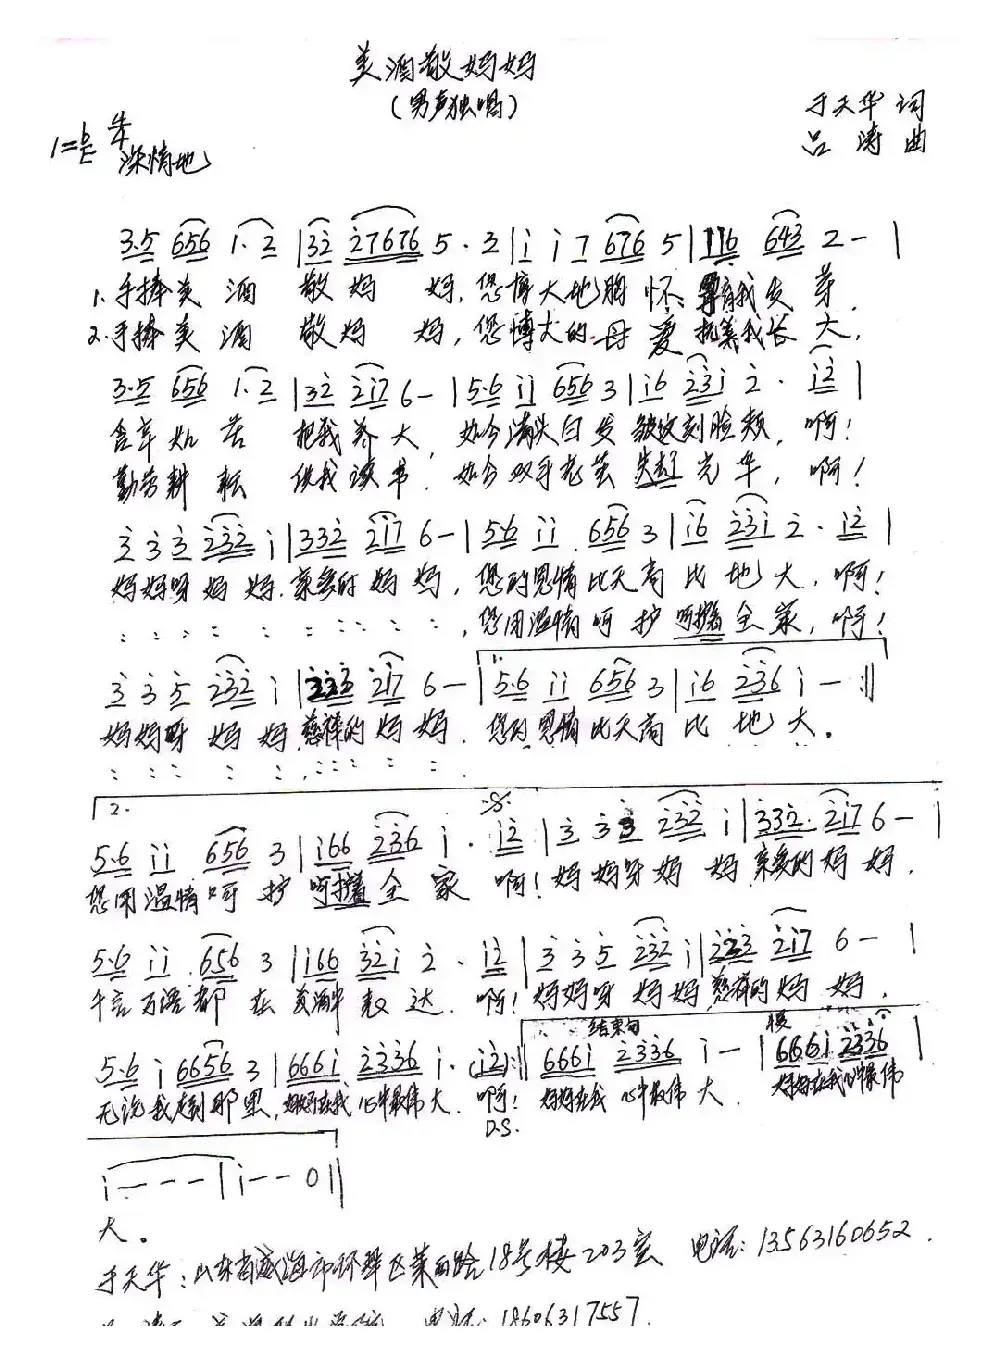 美酒敬妈妈
(男声独唱)
于天华 词
吕涛 曲
1=bE 4/4
深情地
3·5 656 1·2 | 32 27676 5·3 | i i 7 676 5 | 1 1 6 643 2 - |
1. 手捧美酒 敬妈妈,您博大地胸怀 我发芽,
2. 手捧美酒 敬妈妈,您博大的母爱 抚养我长大,
3·5 656 1·2 | 32 2i7 6 - | 5·6 ii 656 3 | i6 23i 2· i2 |
含辛如苦 把我养大,如今满头白发 皱纹刻脸颊,啊!
勤劳耕耘 供我读书,如今双手老茧 失起光华,啊!
3 3 3 232 i | 332 2i7 6 - | 5·6 ii 656 3 | i6 23i 2· i2 |
妈妈呀妈妈,亲爱的妈妈,您的恩情比天高比地大,啊!
: : : : : : : : : : ,您用温情呵护 呵护着全家,啊!
3 3 5 232 i | 333 2i7 6 - | 1. 5·6 ii 656 3 | i6 236 i - :||
妈妈呀妈妈慈祥的妈妈,您的恩情比天高比地大。
: : : : : , : : : : : .
2.
5·6 ii 656 3 | i66 236 i· i2 | 3 3 3 232 i | 332 2i7 6 - |
您用温情呵护 呵护着全家 啊!妈妈呀妈妈亲爱的妈妈,
5·6 ii 656 3 | i66 32i 2· i2 | 3 3 5 232 i | 223 2i7 6 - |
千言万语都在美酒中表达,啊!妈妈呀妈妈慈祥的妈妈,
结束句 慢
5·6 i 6656 3 | 666i 2336 i· (i2) :|| 666i 2336 i - | 666i 2336 |
无论我走到那里,妈妈在我心中最伟大.啊! 妈妈在我心中最伟大. 妈妈在我心中最伟
D.S.
i - - - | i - - 0 ||
大。
于天华:山东省威海市环翠区莱西路18号楼203室 电话:13563160652.
电话:18606317557.